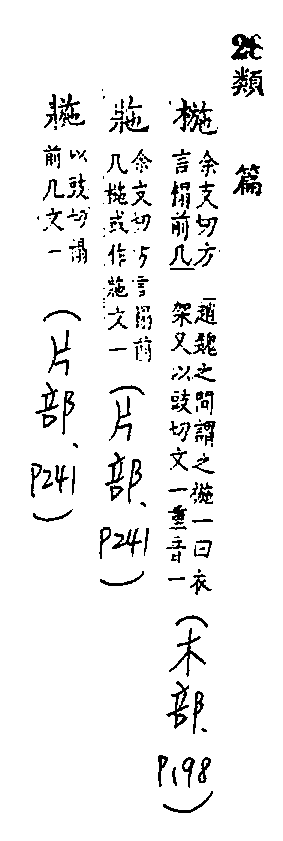 26 類篇
椸 余支切方言榻前几趙魏之間謂之椸一曰衣架又以豉切文一重音一（木部、P198）
㢮 余支切方言榻前几椸或作㢮文一（片部、P241）
以豉切榻前几文一（片部、P241）